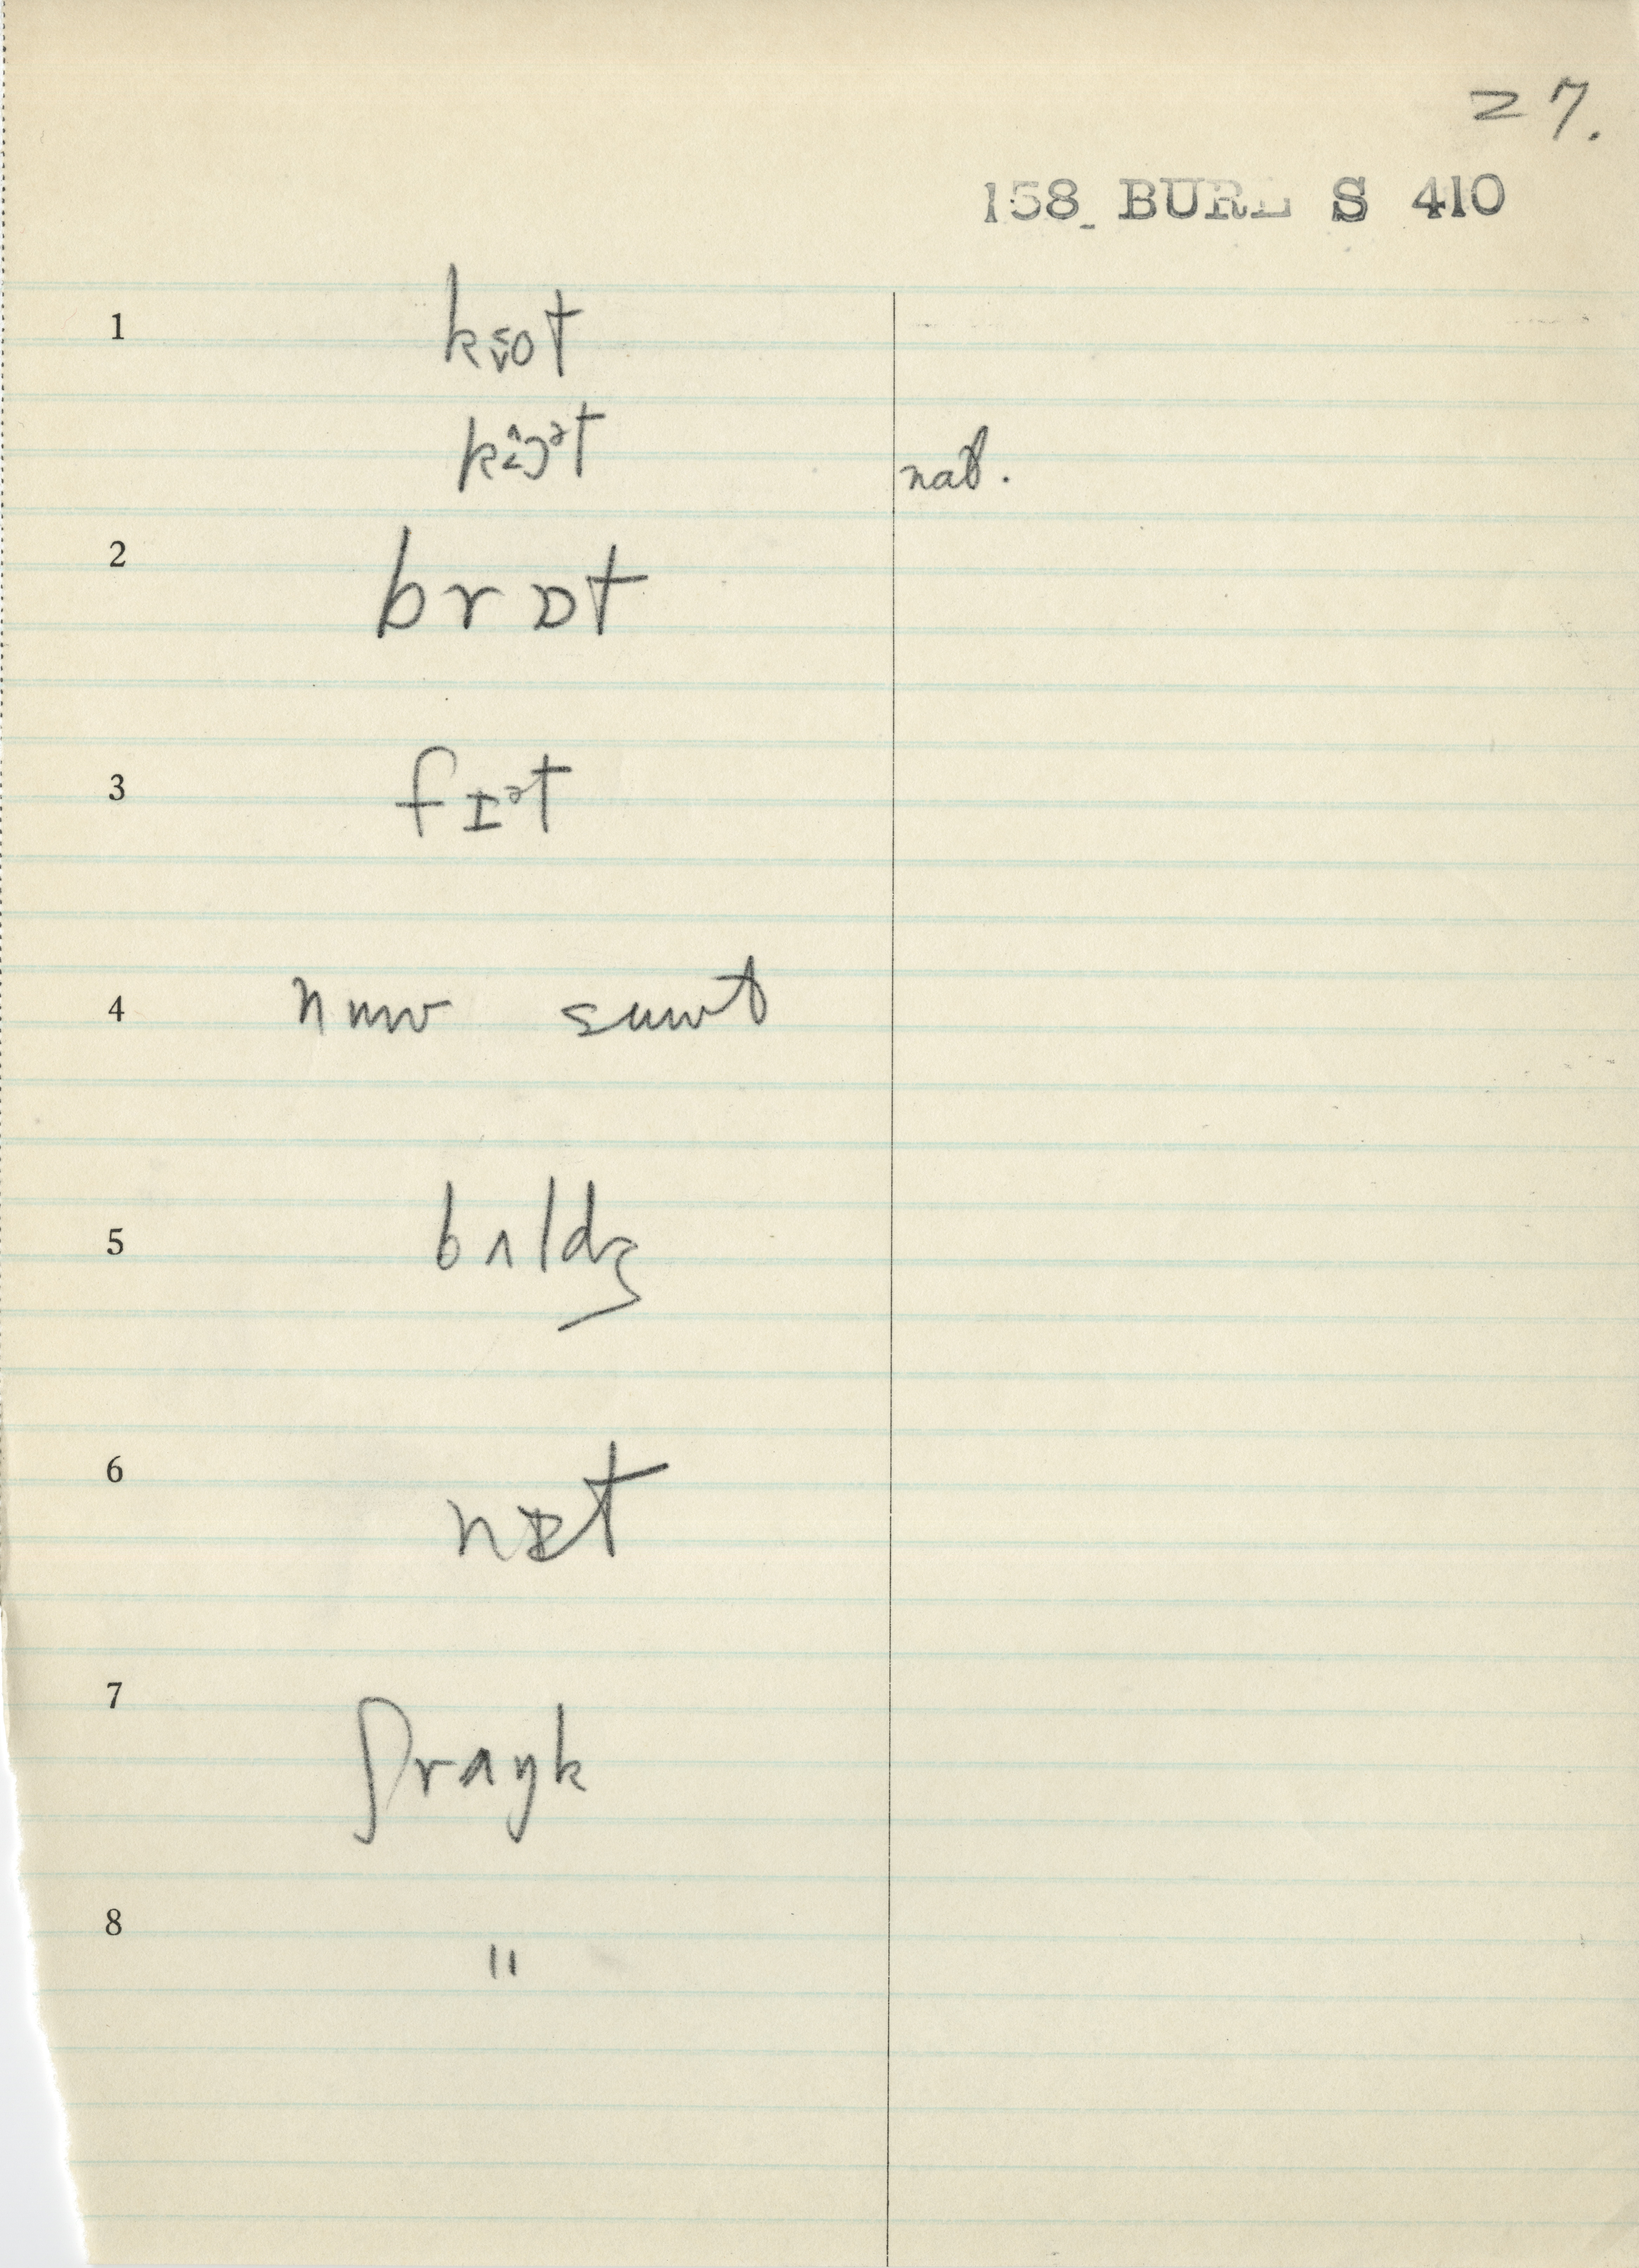 27.
158 BURL S 410
1
k o t
k ɔᵊt nat.
2
brɒt
3
fɪᵊt
4
nuw suwt
5
bʌldʒ
6
nɒt
7
ʃrʌŋk
8
"